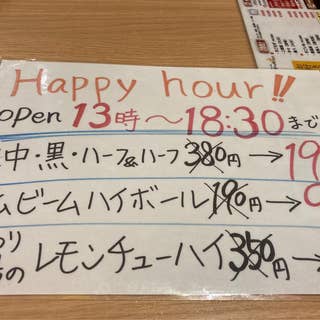 Happy hour!!
open 13時〜18:30まで
中・黒・ハーフ&ハーフ 380円→19
ムビームハイボール 190円→
り
の レモンチューハイ 350円→